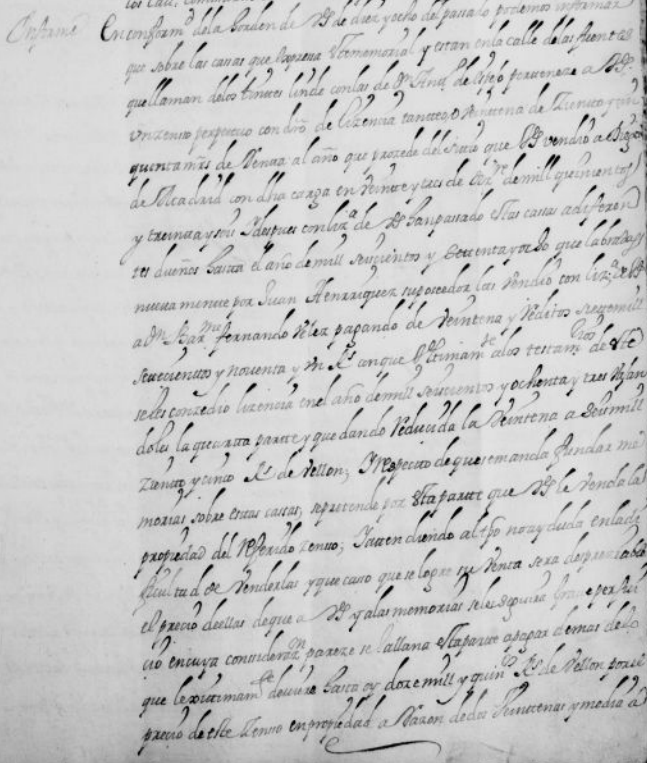 Informe En conform.d de la horden de VS de diez y ocho del passado podemos informar
que sobre las cassas que expresa este memorial y estan en la calle de las fuentes
que llaman de los tintes linde con las de Dn Anto de perteneze a VS.
un zenso perpetuo con dro de lizencia tanteo y veintena de ziento y
quenta mrs de Renta al año que prozede del sitio que VS vendio a Diego
de Madrid con dha carga en veinte y tres de de mill quinientos
y treinta y seis Y despues con liza de VS han passado estas cassas a diferen
tes dueños hasta el año de mill seiscientos y setenta y ocho que labradas
nueva mente por Juan Henrriquez su poseedor las vendio con liza de VS
a Dn Bar.me fernando Velez pagando de veintena y reditos siete mill
setecientos y noventa y un Rs aunque Ultimam.te a los testam.ros de este
se les conzedio lizencia en el año de mill seiscientos y ochenta y tres
doles la quarta parte y quedando reducida la Veintena a seis mill
ziento y cinco Rs de vellon; Y respecto de que se manda fundar me
morias sobre estas cassas, se pretende por esta parte que VS le venda la
propiedad del referido zenso; Y attendiendo al tpo no ay duda en la di
ficultad de venderlas y que caso que se logre su venta sera despreziable
el precio de ellas de que a VS y a las memorias se les seguira grave perjui
cio en cuya considerazn pareze se allana esta parte a pagar demas de lo
que lexitimam.te deviere hasta oy doze mill y quin.os Rs de vellon por el
precio de este zenso en propiedad a Razon de dos Veintenas y media a